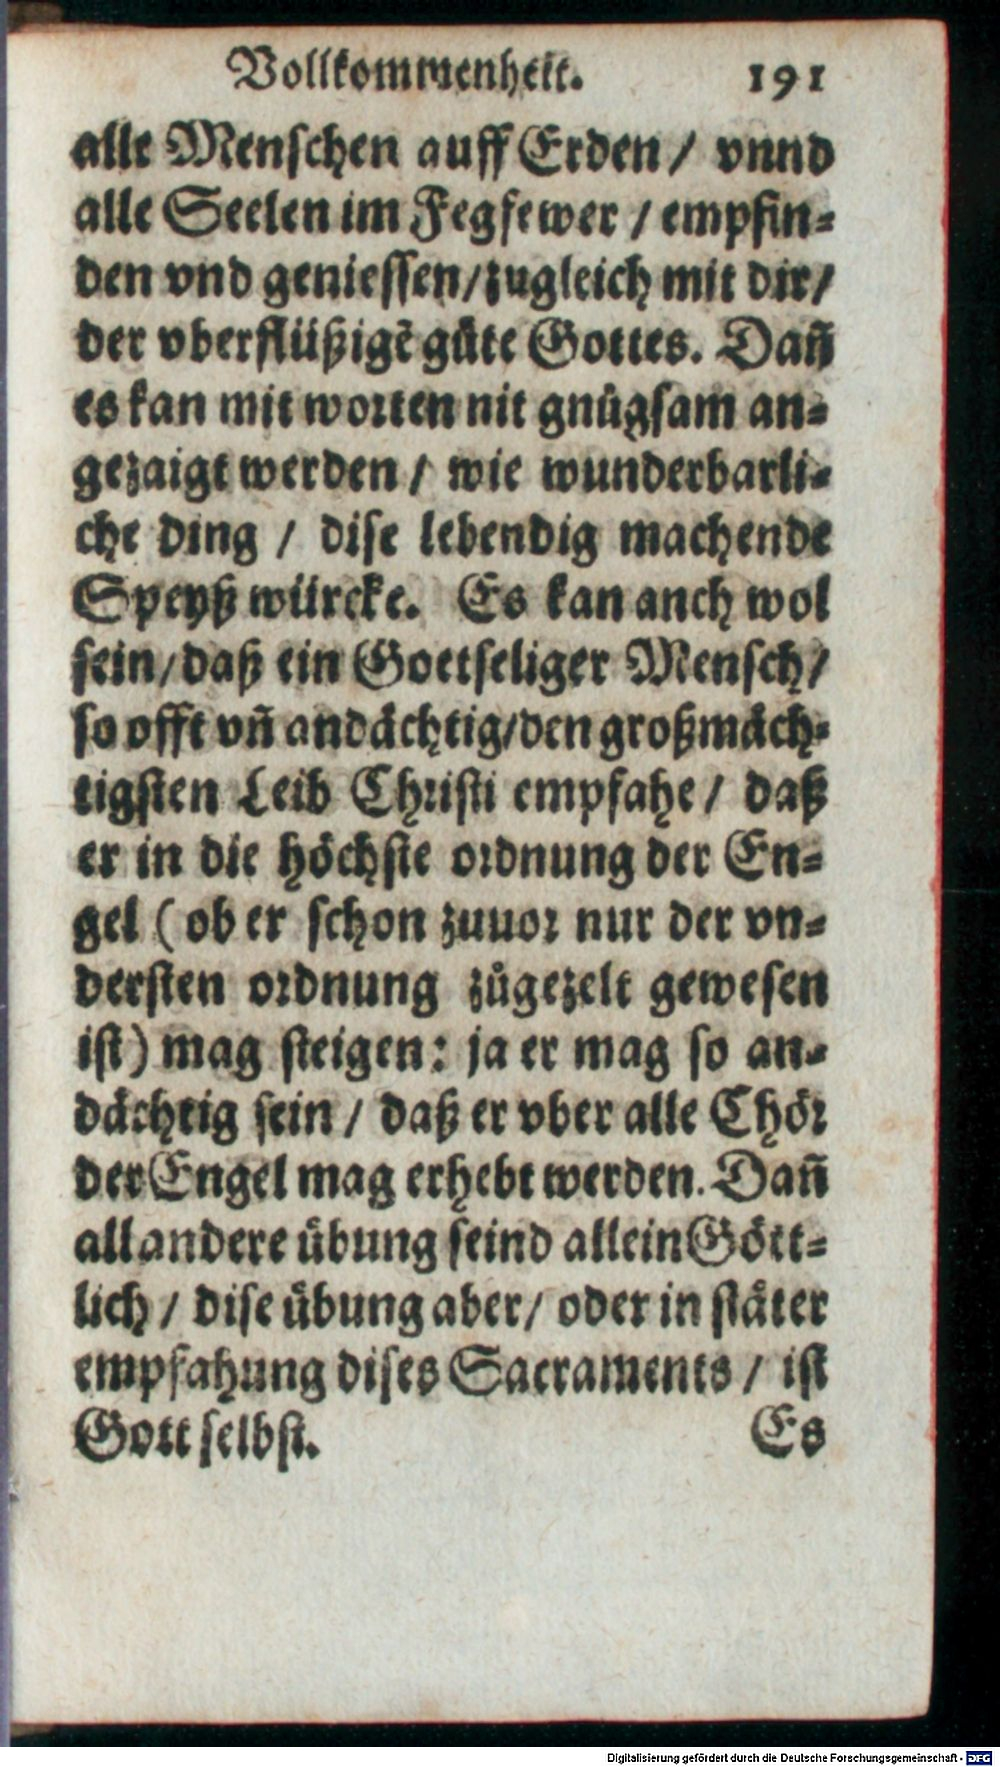 Vollkommenheit. 191
alle Menschen auff Erden / vnnd
alle Seelen im Fegfewer / empfin-
den vnd geniessen/zugleich mit dir/
der vberflüßigẽ gůte Gottes. Dañ
es kan mit worten nit gnůgsam an-
gezaigt werden / wie wunderbarli-
che ding / dise lebendig machende
Speyß würcke. Es kan anch wol
sein/daß ein Gottseliger Mensch/
so offt vñ andåchtig/den großmåch-
tigsten Leib Christi empfahe / daß
er in die höchste ordnung der En-
gel (ob er schon zuuor nur der vn-
dersten ordnung zůgezelt gewesen
ist) mag steigen: ja er mag so an-
dåchtig sein / daß er vber alle Chör
der Engel mag erhebt werden. Dañ
all andere übung seind allein Gött-
lich / dise übung aber/ oder in ståter
empfahung dises Sacraments / ist
Gott selbst. Es
Digitalisierung gefördert durch die Deutsche Forschungsgemeinschaft - DFG